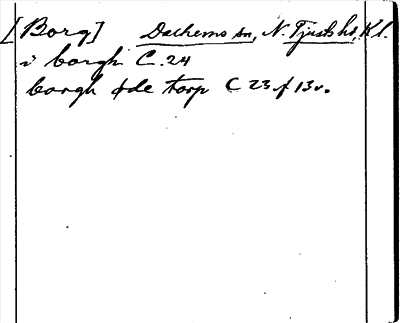 [Borg] Dalhems sn, N. Tjusts hd, Kl.
i borgh C. 24
borgh öde torp C 23 f 13v.